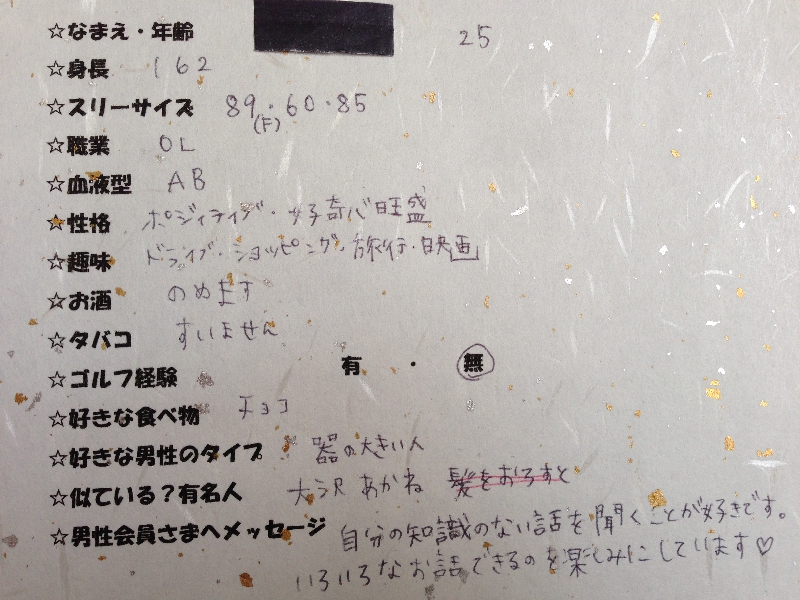 ☆なまえ・年齢 25
☆身長 162
☆スリーサイズ 89・60・85
(F)
☆職業 OL
☆血液型 AB
☆性格 ポジティブ・好奇心旺盛
☆趣味 ドライブ・ショッピング・旅行・映画
☆お酒 のめます
☆タバコ すいません
☆ゴルフ経験 有 ・ 無
☆好きな食べ物 チョコ
☆好きな男性のタイプ 器の大きい人
☆似ている？有名人 大沢あかね 髪をおろすと
☆男性会員さまへメッセージ 自分の知識のない話を聞くことが好きです。
いろいろなお話できるのを楽しみにしています♡